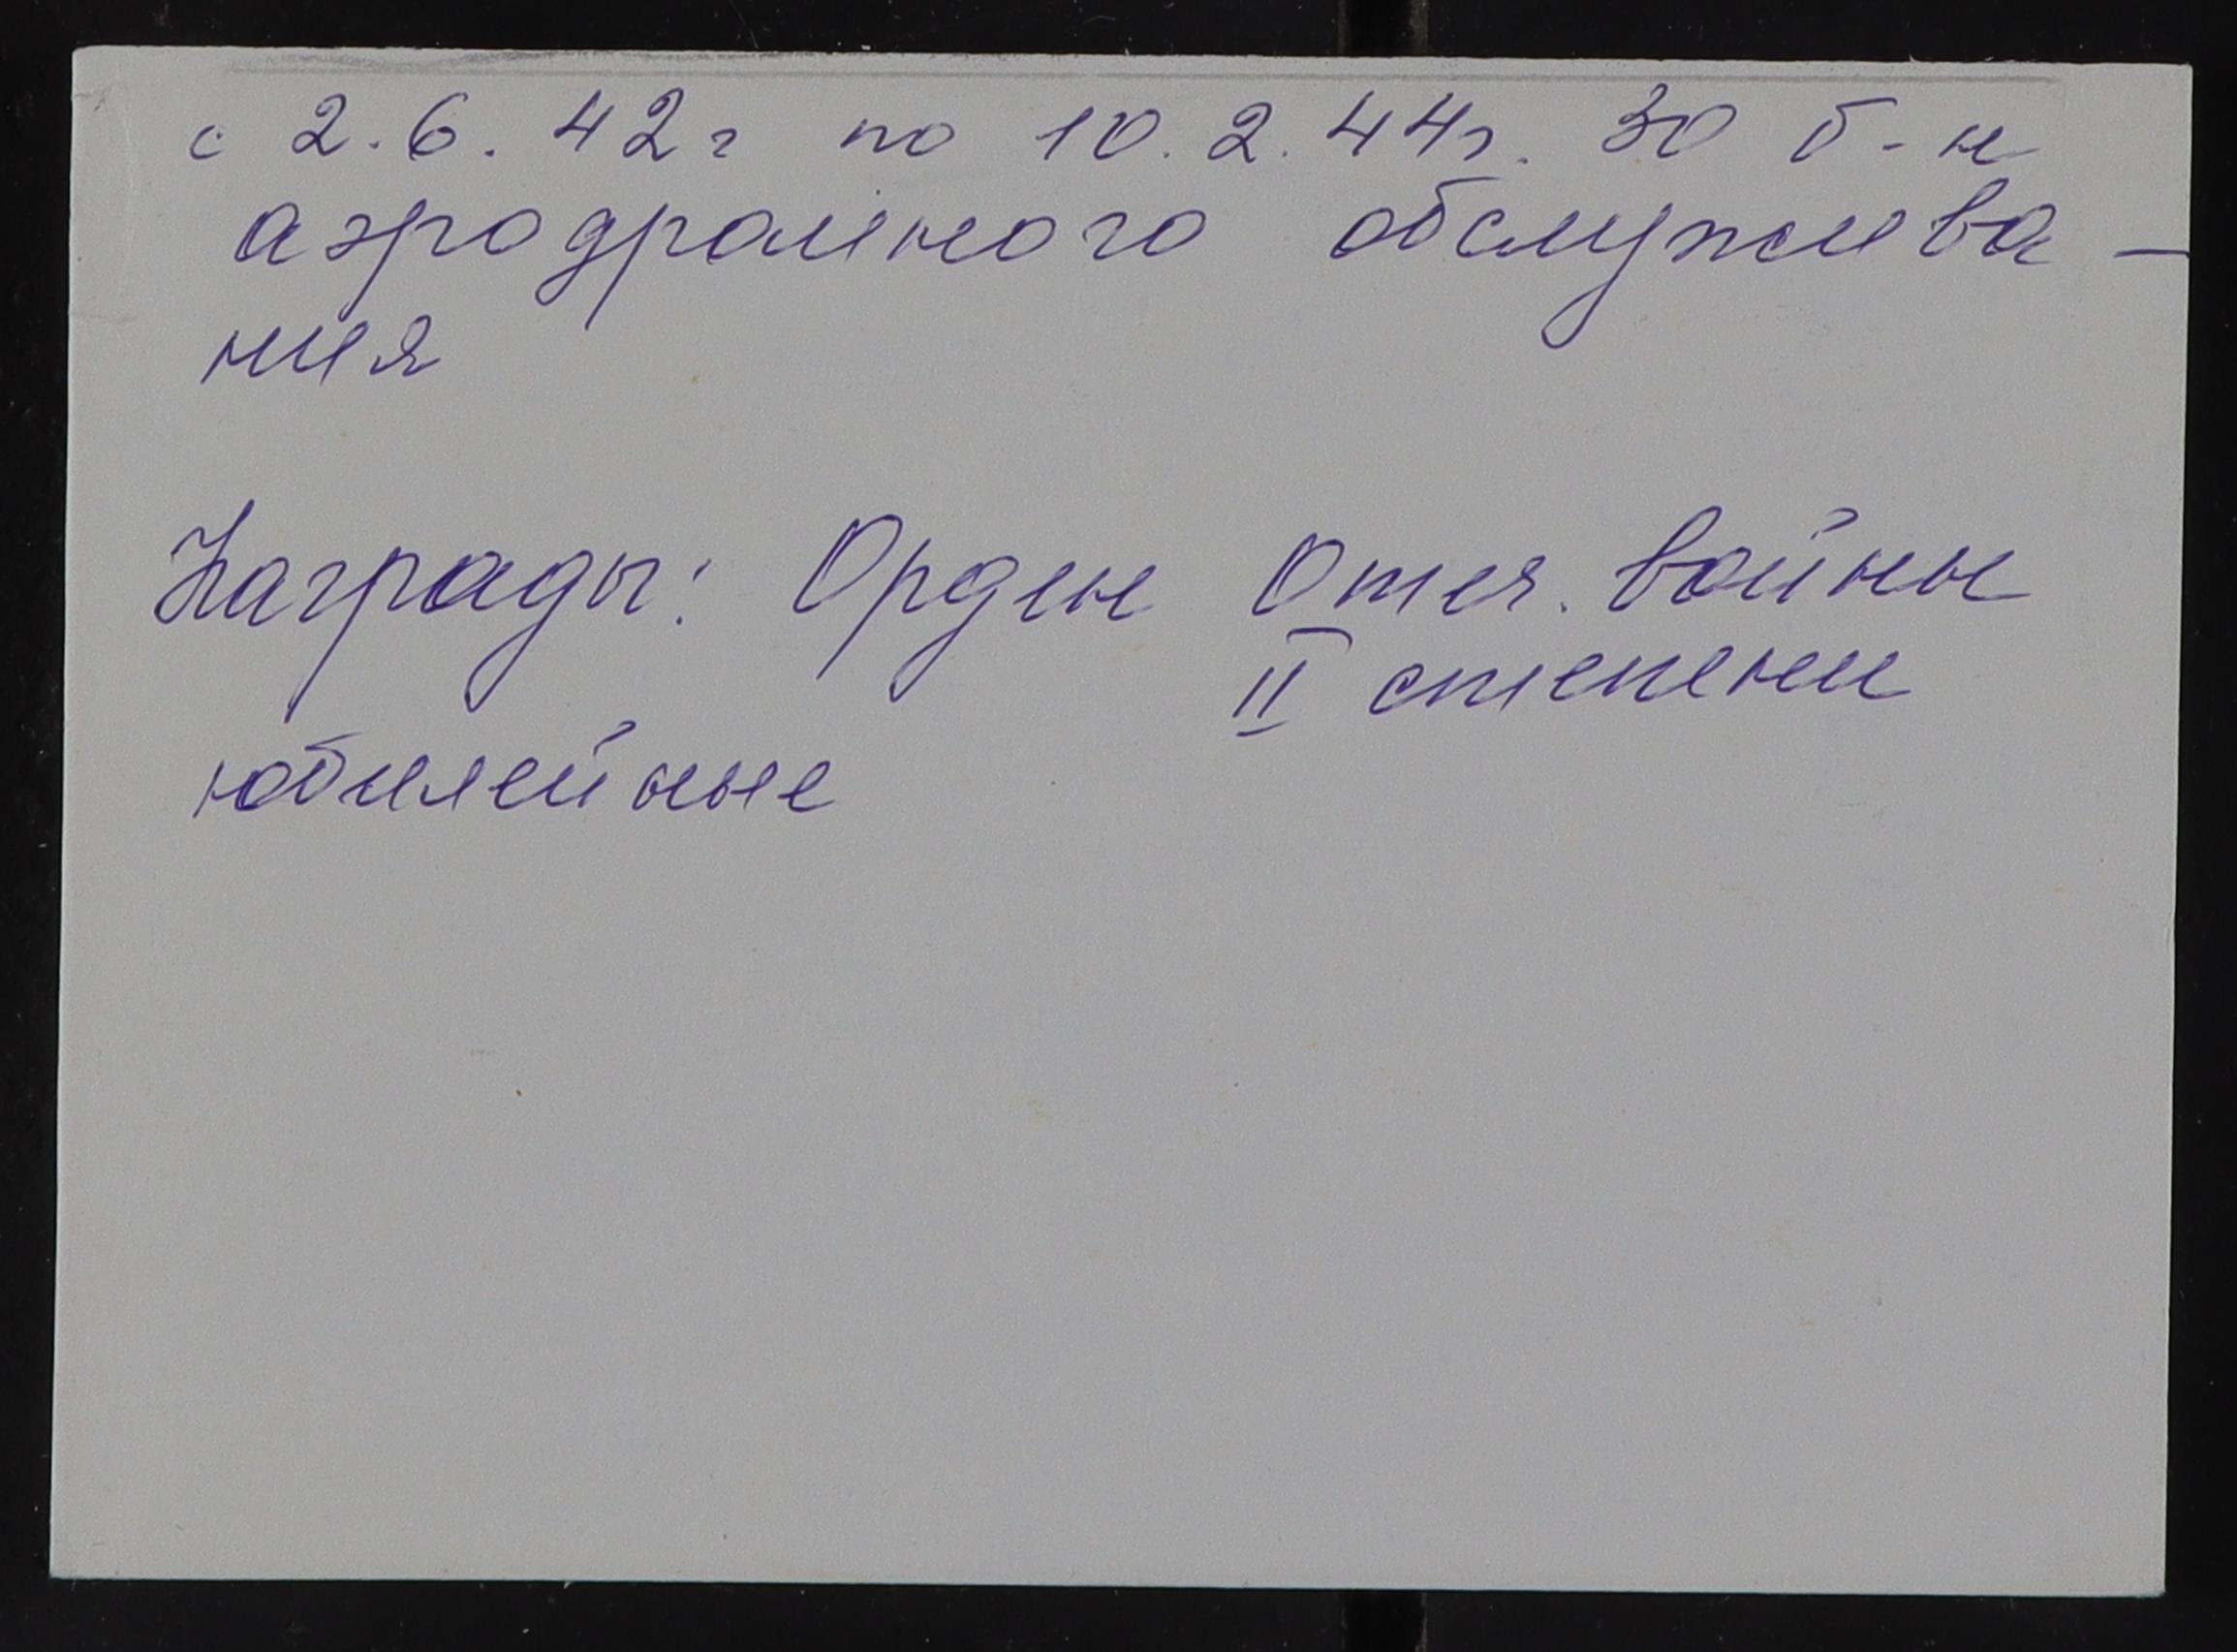 с 2.6.42г по 10.2.44г. 30 б-н
аэродромного обслужива-
ния
Награды: Орден Отеч. войны
II степени
юбилейные